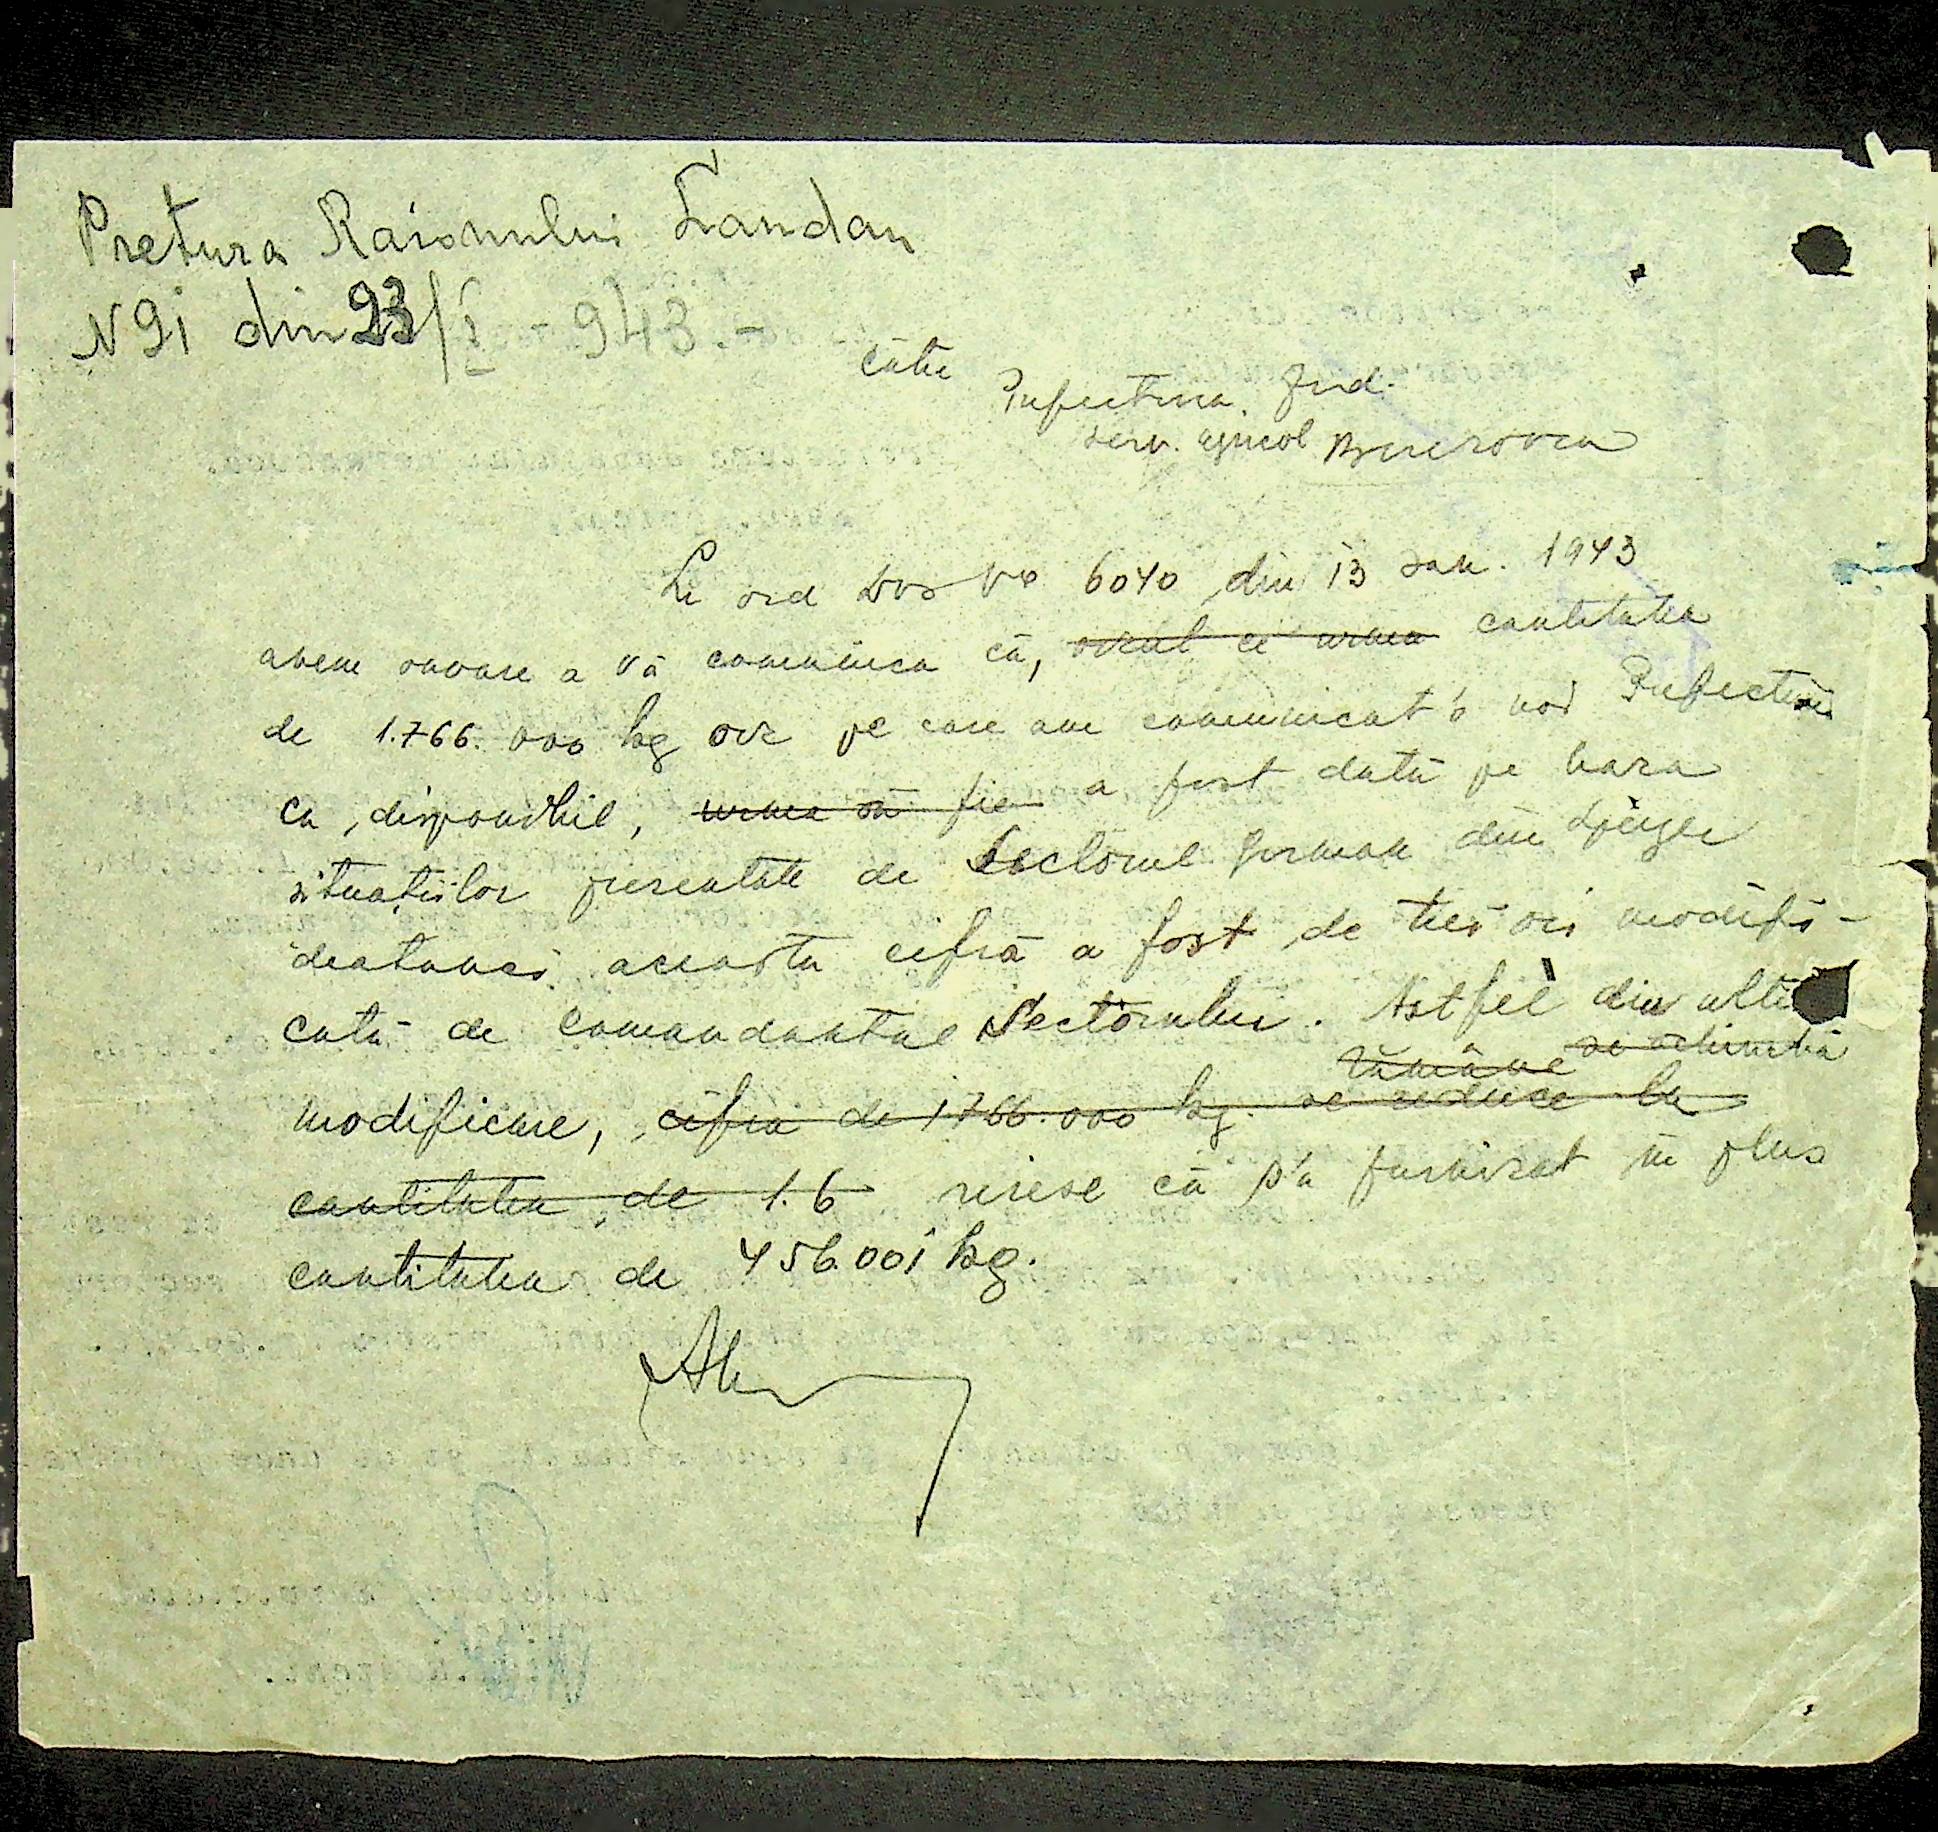 Pretura Raionului Landau
N 91 din 23/I - 943.-
Către
Prefectura Jud.
serv. agricol Berezovca
La ord Dvs No 6040 din 13 Ian. 1943
avem onoare a vă comunica că, orzul ce urma cantitatea
de 1.766.000 kg orz pe care am comunicat'o noi Prefecturii
ca disponibil, urma să fie a fost dată pe baza
situațiilor prezentate de Sectorul german din Speyer
deatunci această cifră a fost de trei ori modifi-
cată de comandantul Sectorului. Astfel din ulti
rămâne se schimbă
modificare, cifra de 1766.000 kg. se reduce la
cantitatea de 1.6 reiese că s'a furnizat în plus
cantitatea de 456.001 kg.